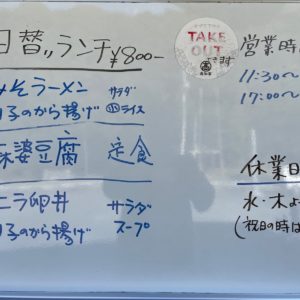 日替〃ランチ ¥800-
みそラーメン サラダ
小ライス
子のから揚げ
麻婆豆腐 定食
ニラ卵丼 サラダ
子のから揚げ スープ
TAKE
OUT
できます
営業時
11:30〜
17:00〜
休業日
水・木よ
(祝日の時は